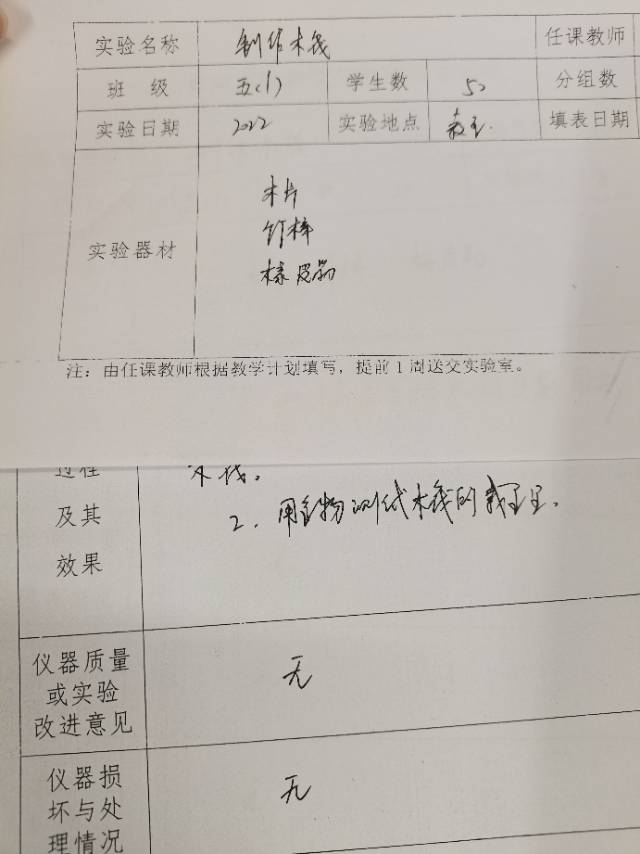 实验名称 制作木筏 任课教师
班 级 五(1) 学生数 50 分组数
实验日期 2022 实验地点 教室. 填表日期
实验器材
木片
橡皮筋
注：由任课教师根据教学计划填写，提前1周送交实验室。
过程
及其
效果
木筏。
2. 用重物测试木筏的载重量.
仪器质量
或实验
改进意见
无
仪器损
坏与处
理情况
无